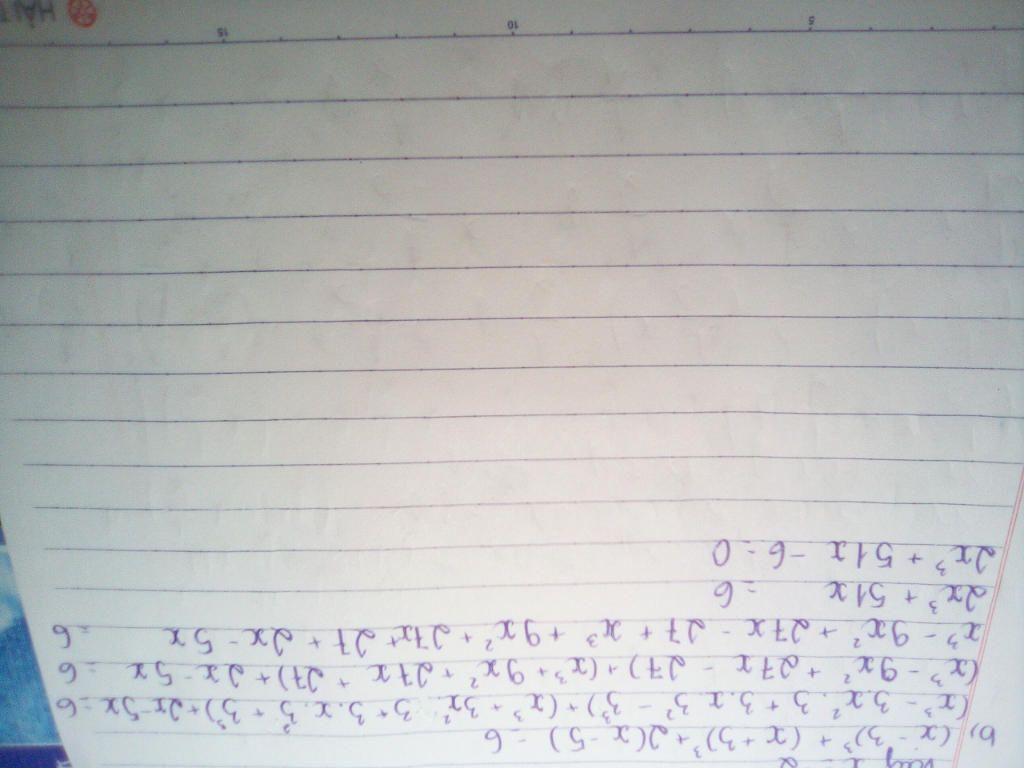 b) (x - 3)³ + (x + 3)³ + 2(x - 5) = 6
(x³ - 3.x².3 + 3.x 3² - 3³) + (x³ + 3x².3 + 3.x.3² + 3³) + 2x - 5x = 6
(x³ - 9x² + 27x - 27) + (x³ + 9x² + 27x + 27) + 2x - 5x = 6
x³ - 9x² + 27x - 27 + x³ + 9x² + 27x + 27 + 2x - 5x = 6
2x³ + 51x = 6
2x³ + 51x - 6 = 0
5 10 15
HẢI